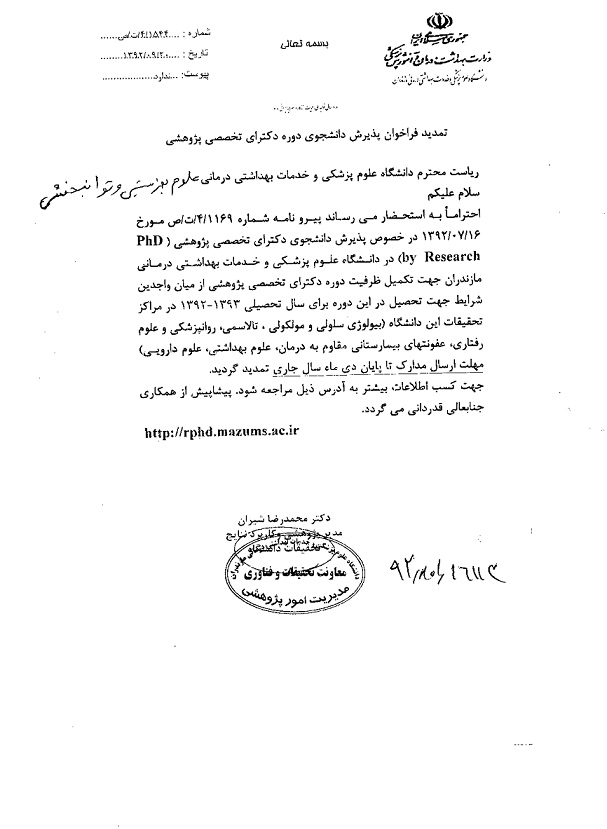 بسمه تعالی
جمهوری اسلامی ایران
وزارت بهداشت، درمان و آموزش پزشکی
دانشگاه علوم پزشکی و خدمات بهداشتی درمانی مازندران
شماره : ....۴/۱۵۴۴/ت/ص......
تاریخ : ....۱۳۹۲/۰۹/۲۰........
پیوست: ....ندارد..................
تمدید فراخوان پذیرش دانشجوی دوره دکترای تخصصی پژوهشی
ریاست محترم دانشگاه علوم پزشکی و خدمات بهداشتی درمانی علوم بهزیستی و توانبخشی
سلام علیکم
احتراماً به استحضار می رساند پیرو نامه شماره ۴/۱۱۶۹/ت/ص مورخ
۱۳۹۲/۰۷/۱۶ در خصوص پذیرش دانشجوی دکترای تخصصی پژوهشی ( PhD
by Research) در دانشگاه علوم پزشکی و خدمات بهداشتی درمانی
مازندران جهت تکمیل ظرفیت دوره دکترای تخصصی پژوهشی از میان واجدین
شرایط جهت تحصیل در این دوره برای سال تحصیلی ۱۳۹۳-۱۳۹۲ در مراکز
تحقیقات این دانشگاه (بیولوژی سلولی و مولکولی ، تالاسمی، روانپزشکی و علوم
رفتاری، عفونتهای بیمارستانی مقاوم به درمان، علوم بهداشتی، علوم دارویی)
مهلت ارسال مدارک تا پایان دی ماه سال جاری تمدید گردید.
جهت کسب اطلاعات بیشتر به آدرس ذیل مراجعه شود. پیشاپیش از همکاری
جنابعالی قدردانی می گردد.
http://rphd.mazums.ac.ir
دکتر محمدرضا شیران
مدیر پژوهشی و کاربرد نتایج
تحقیقات دانشگاه
معاونت تحقیقات و فناوری
مدیریت امور پژوهشی